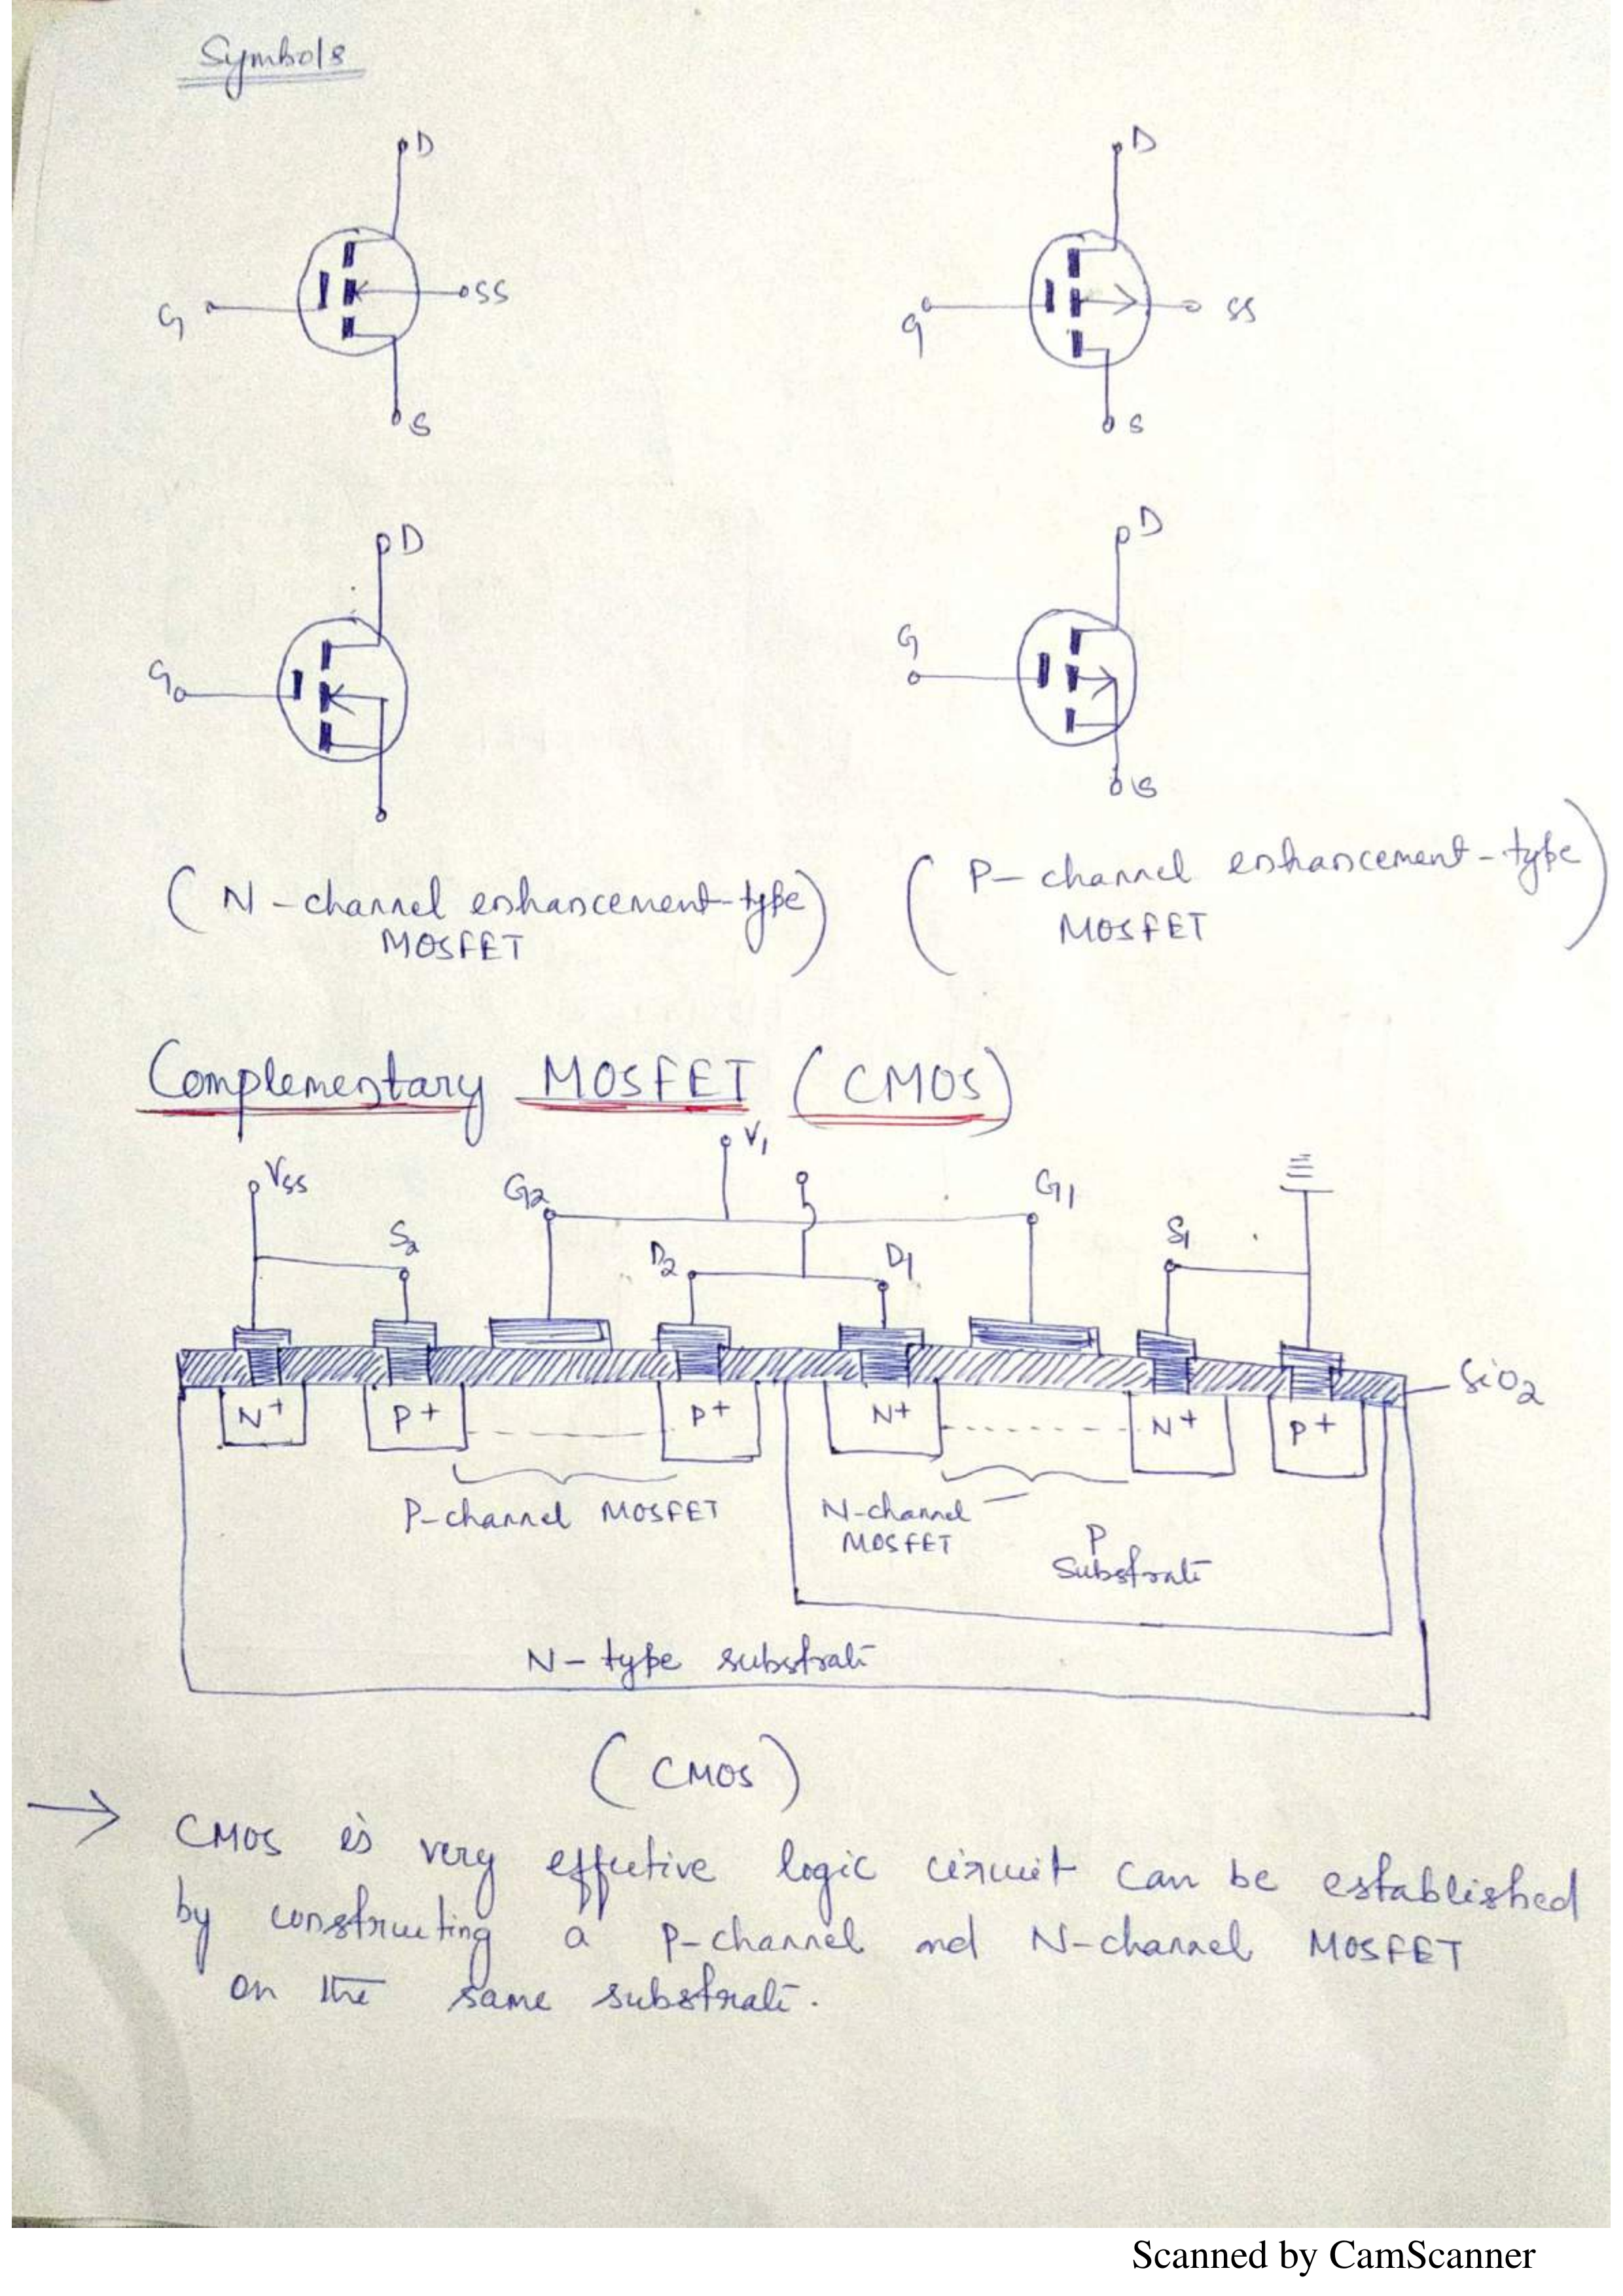 Symbols
D
D
G
SS
G
SS
S
S
D
D
G
G
S
(N-channel enhancement-type)
MOSFET
(P-channel enhancement-type)
MOSFET
Complementary MOSFET (CMOS)
V1
VSS
G2
G1
S2
S1
D2
D1
SiO2
N+
P+
P+
N+
N+
P+
P-channel MOSFET
N-channel
MOSFET
P
Substrate
N-type substrate
(CMOS)
→ CMOS is very effective logic circuit can be established
by constructing a P-channel and N-channel MOSFET
on the same substrate.
Scanned by CamScanner